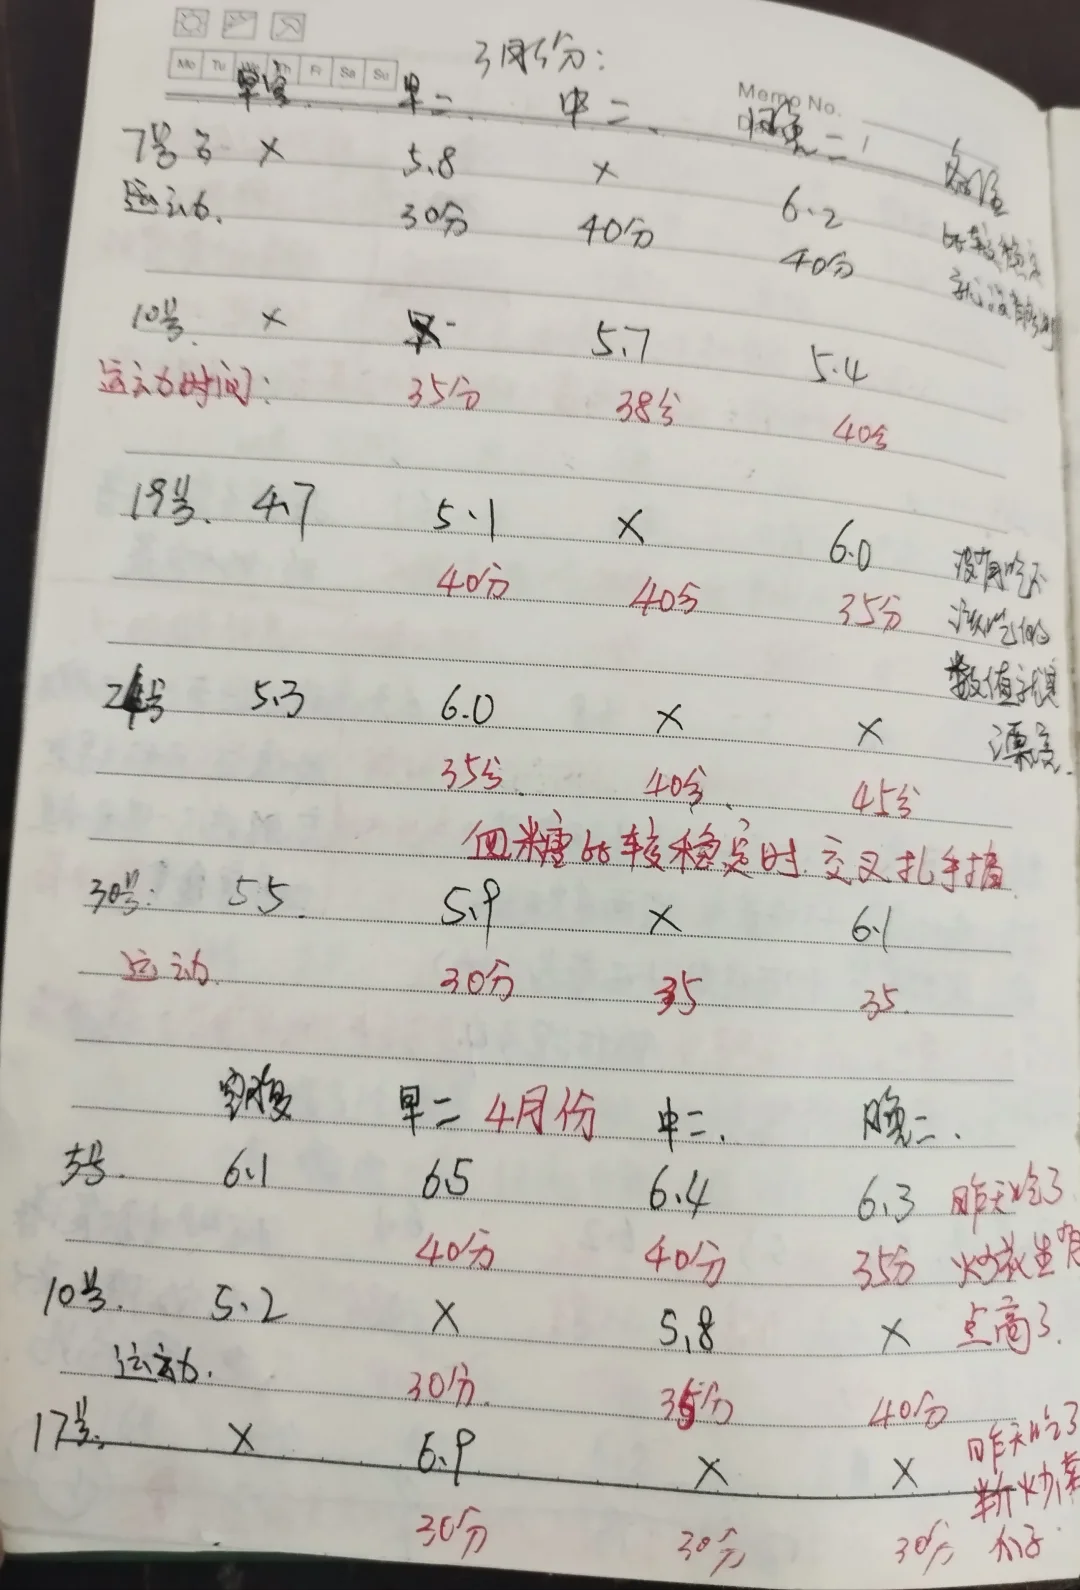 3月份:
Mo Tu We Th Fr Sa Su
Memo No.
早二 中二 晚二
7号 × 5.8 × 6.2
运动. 30分 40分 40分
比较稳定
就没有
10号. × × 5.7 5.4
运动时间: 35分 38分 40分
19号. 4.7 5.1 × 6.0
40分 40分 35分
没有吃不
该吃的
数值就
漂亮.
号 5.3 6.0 × ×
35分. 40分. 45分
血糖比较稳定时.交叉扎手指
30号: 5.5. 5.9 × 6.1
运动. 30分 35 35.
空腹 早二 4月份 中二. 晚二.
号. 6.1 6.5 6.4 6.3
40分 40分 35分
昨天吃了
炒花生有
点高了.
10号. 5.2 × 5.8 ×
运动. 30分. 35分 40分
17号. × 6.9 × ×
30分 30分 30分
昨天吃了
新炒
瓜子